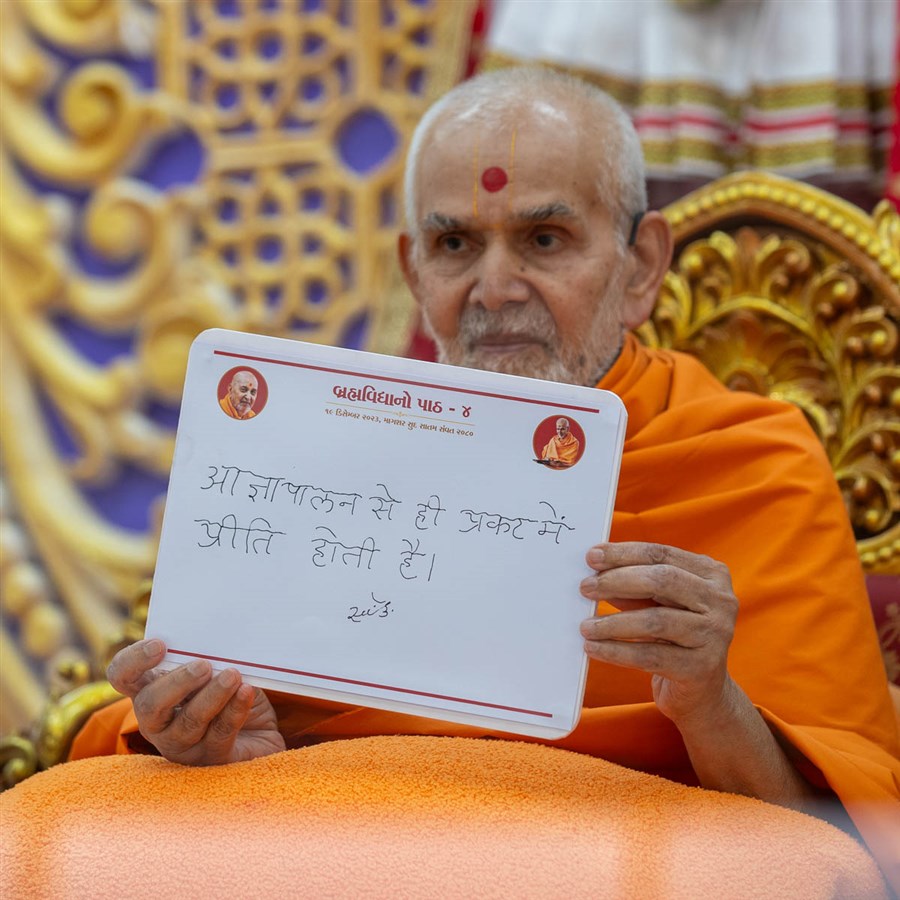 બ્રહ્મવિદ્યાનો પાઠ - ૪
૧૯ ડિસેમ્બર ૨૦૨૩, માગશર સુદ સાતમ સંવત ૨૦૮૦
आज्ञापालन से ही प्रकट में
प्रीति होती है।